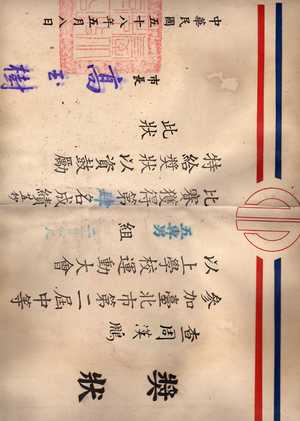 獎狀
查周漢鵬
參加臺北市第二屆中等
以上學校運動大會
五專男組
比賽獲得第名成績
特給獎狀以資鼓勵
此狀
市長 高玉樹
中華民國五十八年五月八日